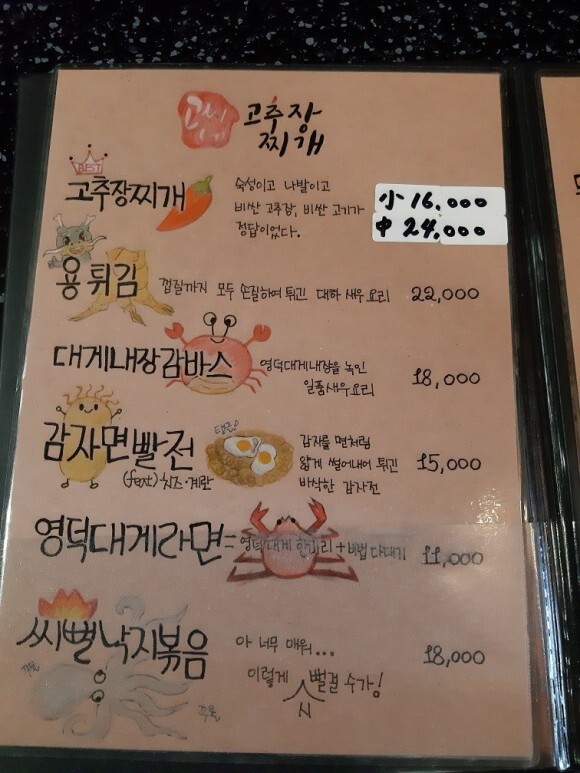 고추장
찌개
BEST
고추장찌개
숙성이고 나발이고
비싼 고추장, 비싼 고기가
정답이었다.
小 16.000
中 24.000
용튀김
껍질까지 모두 손질하여 튀긴 대하 새우 요리
22,000
대게내장감바스
영덕대게내장을 녹인
일품새우요리
18,000
감자면빨전
(feat)치즈·계란
감자를 면처럼
얇게 썰어내어 튀긴
바삭한 감자전
15,000
영덕대게라면
=영덕대게 한마리+비법 다대기
11,000
씨뻘낙지볶음
아 너무 매워...
이렇게 뻘걸 수가!
시
18,000